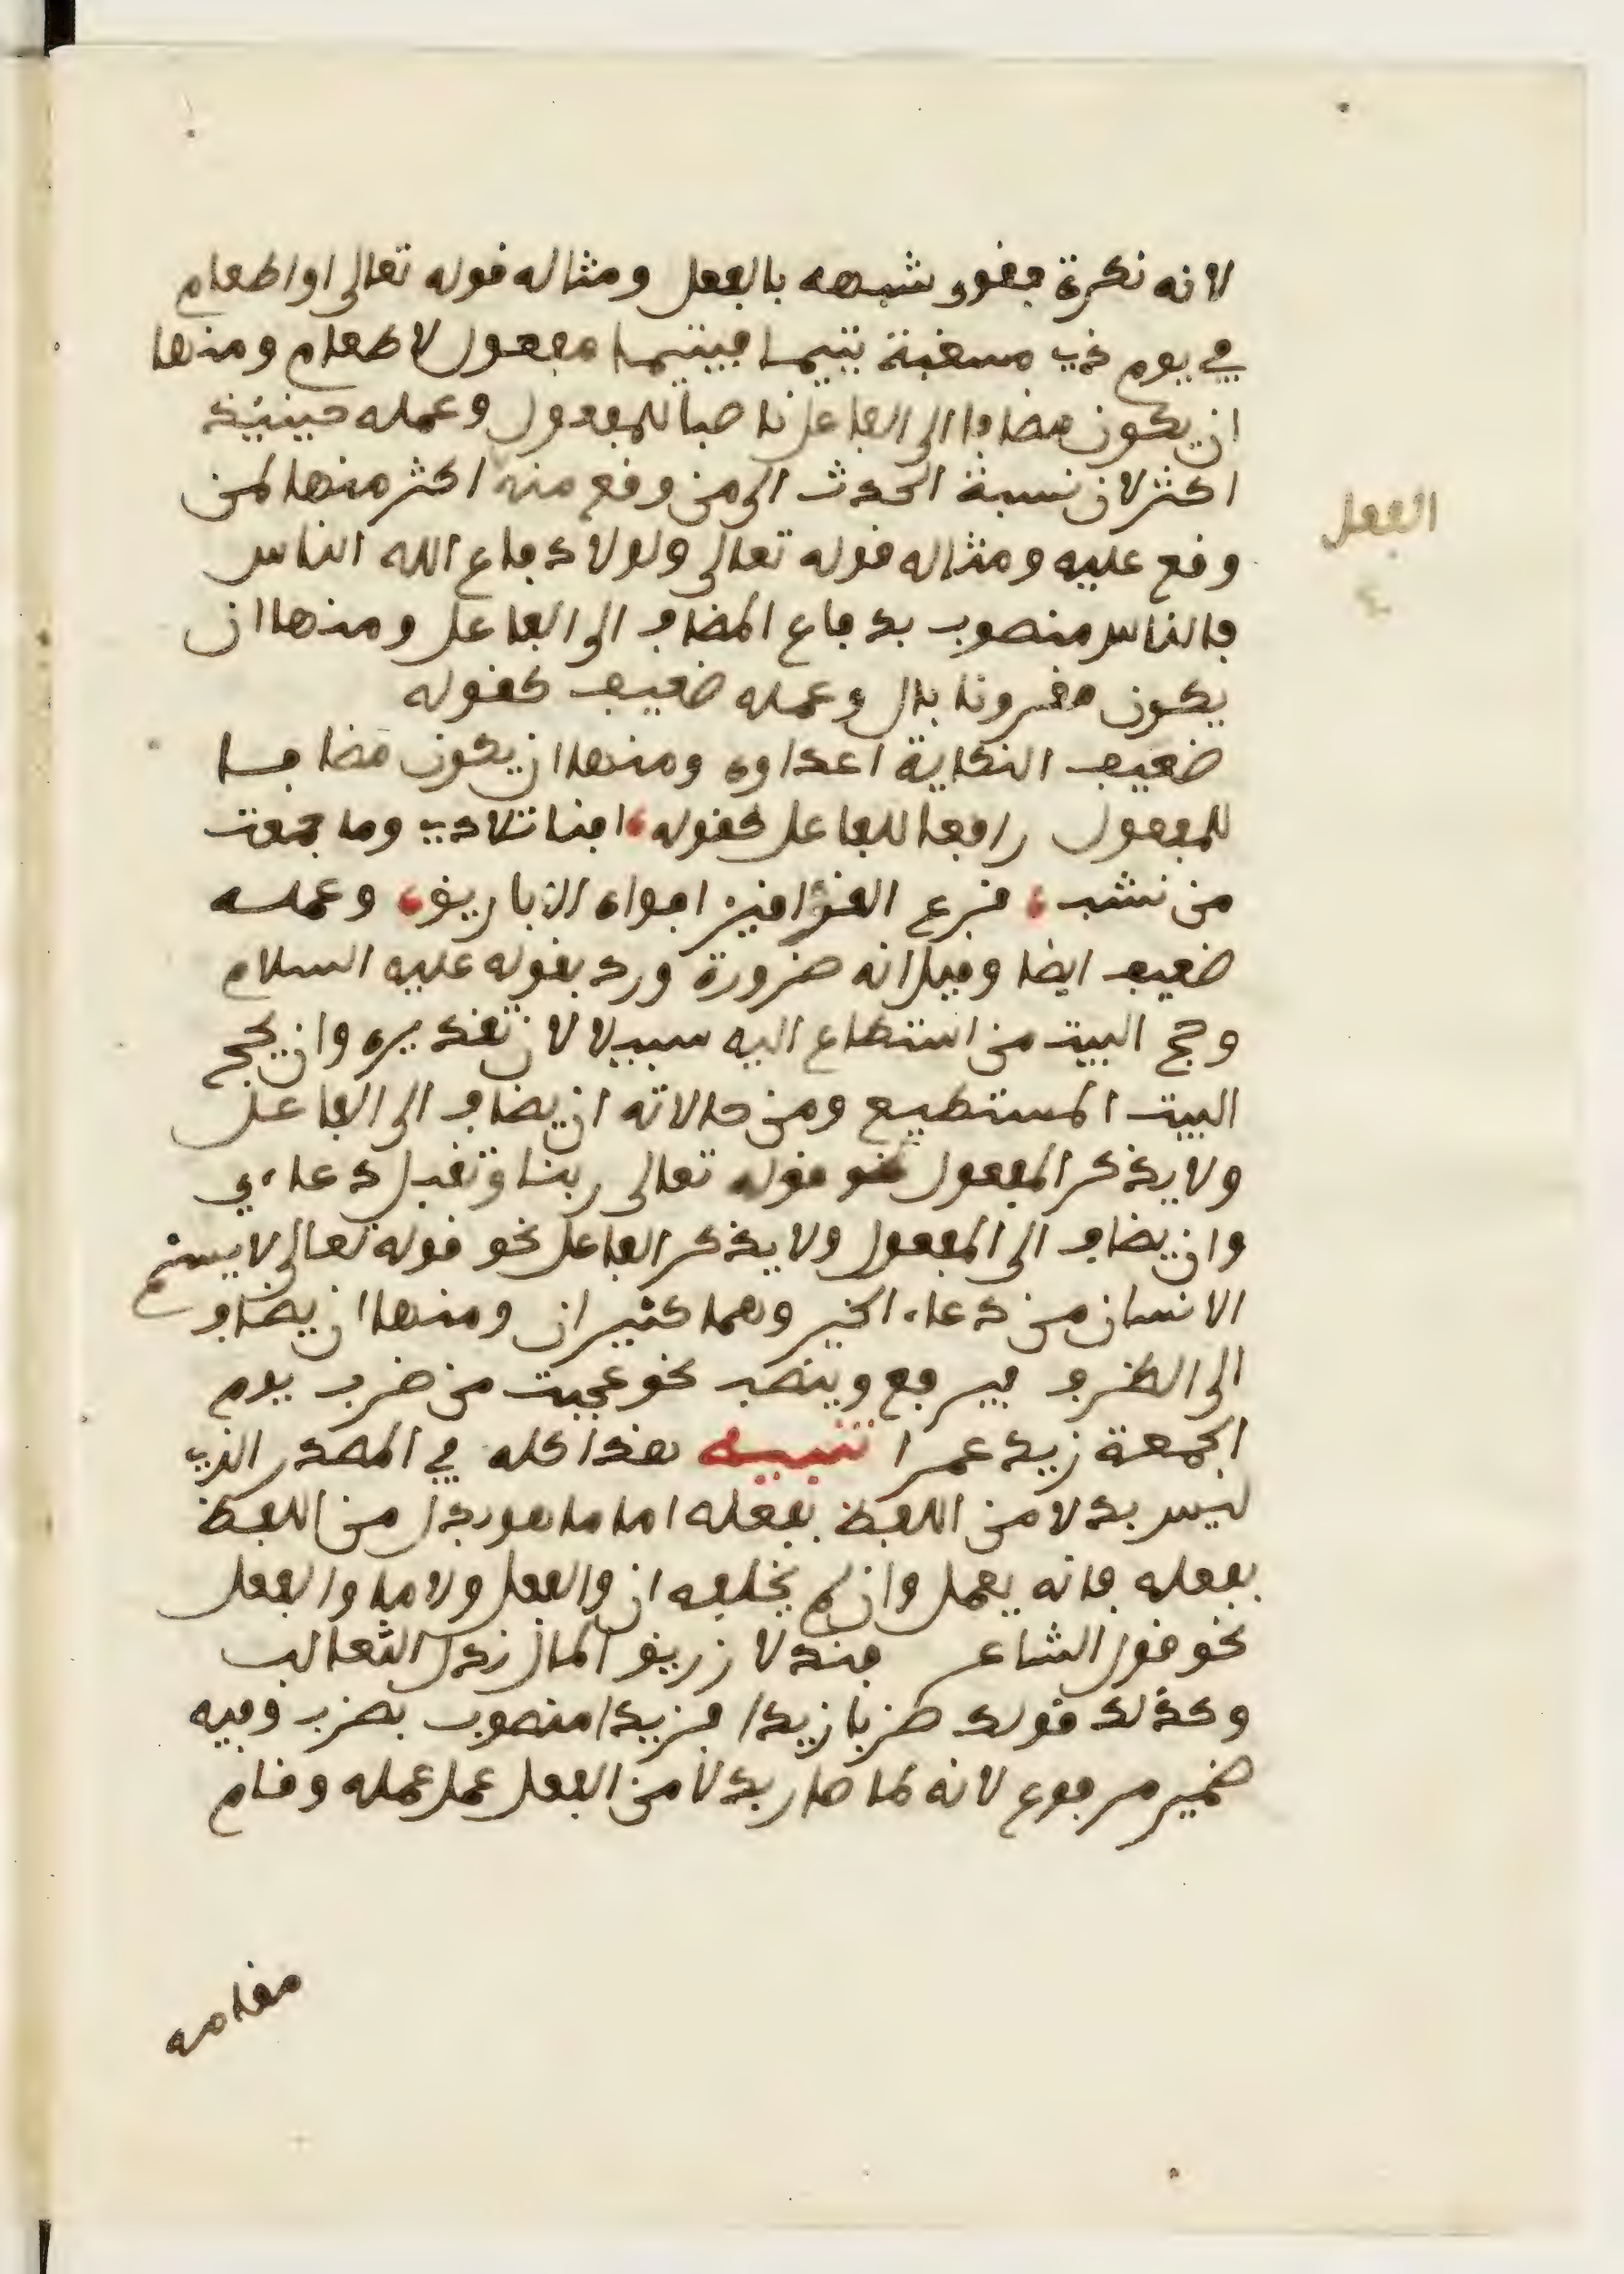 لانه نكرة فقوي شبهه بالفعل ومثاله قوله تعالى او اطعام
في يوم ذي مسغبة يتيما فيتيما مفعول لاطعام ومنها
ان يكون مضافا الى الفاعل ناصبا للمفعول وعمله حينيئذ
اكثر لان نسبة الحدث الى من وقع منه اكثر منها لمن
وقع عليه ومثاله قوله تعالى ولولا دفاع الله الناس
الفعل
فالناس منصوب بدفاع المضاف الى الفاعل ومنها ان
يكون مقرونا بال وعمله ضعيف كقوله
ضعيف النكاية اعداوه ومنها ان يكون مضافا
للمفعول رافعا للفاعل كقوله، افنا تلادي وما جمعت
من نشب، قرع القواقيز افواه الاباريق، وعمله
ضعيف ايضا وقيل انه ضرورة ورد بقوله عليه السلام
وحج البيت من استطاع اليه سبيلا لان تقديره وان يحج
البيت المستطيع ومن حالاته ان يضاف الى الفاعل
ولا يذكر المفعول نحو قوله تعالى ربنا وتقبل دعاءي
وان يضاف الى المفعول ولا يذكر الفاعل نحو قوله تعالى لا يسئم
الانسان من دعاء الخير وهما كثيران ومنها ان يضاف
الى الظرف فيرفع وينصب نحو عجبت من ضرب يوم
الجمعة زيد عمرا تنبيه هذا كله في المصدر الذي
ليس بدلا من اللفظ بفعله اما ما هو بدل من اللفظ
بفعله فانه يعمل وان لم يخلفه ان والفعل ولا ما والفعل
نحو قول الشاعر فندلا زريق المال ندل الثعالب
وكذلك قولك ضربا زيدا فزيدا منصوب بضرب وفيه
ضمير مرفوع لانه لما صار بدلا من الفعل عمل عمله وقام
مقامه